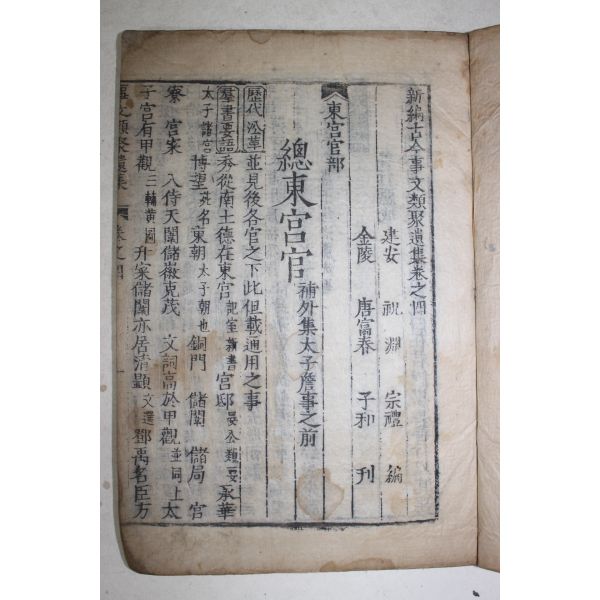 新編古今事文類聚遺集卷之四
建安 祝淵 宗禮 編
金陵 唐富春 子和 刊
東宮官部
總東宮官 補外集太子詹事之前
歷代沿革 並見後各官之下此但載通用之事
羣書要語 委從南土德在東宮 宮邸 承華
太子諸宮 博望 苑名 東朝 太子朝也 銅門 儲闈 儲局 宮
寮 宮寀 入侍天闈儲徽克茂 文詞高於甲觀 並同上 太
子宮有甲觀 三輔黃圖 升寀儲闈亦居清顯 文選 鄧禹名臣方
事文類聚遺集 卷之四